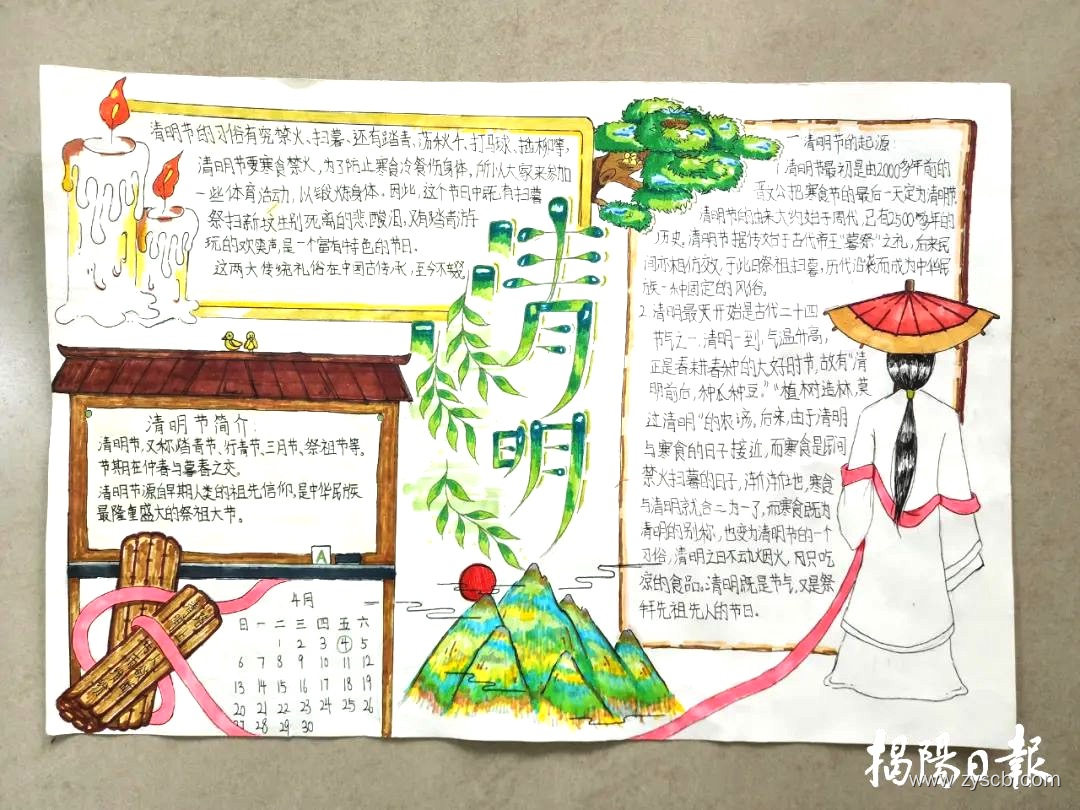 清明节的习俗有究禁火、扫墓、还有踏青、荡秋千、打马球、插柳等，
清明节要寒食禁火，为了防止寒食冷餐伤身体，所以大家来参加
一些体育活动，以锻炼身体。因此，这个节日中既有扫墓
祭扫新坟生别死离的悲酸泪，又有踏青游
玩的欢笑声，是一个富有特色的节日。
这两大传统礼俗在中国古传承，至今不辍
清明
清明节简介：
清明节，又称踏青节、行青节、三月节、祭祖节等。
节期在仲春与暮春之交。
清明节源自早期人类的祖先信仰，是中华民族
最隆重盛大的祭祖大节。
A
4月
日 一 二 三 四 五 六
1 2 3 4 5
6 7 8 9 10 11 12
13 14 15 16 17 18 19
20 21 22 23 24 25 26
27 28 29 30
一清明节的起源：
清明节最初是由2000多年前的
晋文公把寒食节的最后一天定为清明节
清明节的由来大约始于周代，已有2500多年的
历史。清明节据传始于古代帝王“墓祭”之礼，后来民
间亦相仿效，于此日祭祖扫墓，历代沿袭而成为中华民
族一种固定的风俗。
2.清明最早开始是古代二十四
节气之一，清明一到，气温升高，
正是春耕春种的大好时节，故有“清
明前后，种瓜种豆。”“植树造林，莫
过清明”的农谚，后来，由于清明
与寒食的日子接近，而寒食是民间
禁火扫墓的日子，渐渐地，寒食
与清明就合二为一了，而寒食既为
清明的别称，也变为清明节的一个
习俗，清明之日不动烟火，只吃
凉的食品。清明既是节气，又是祭
拜先祖先人的节日。
揭陽日報
www.zyscb.com